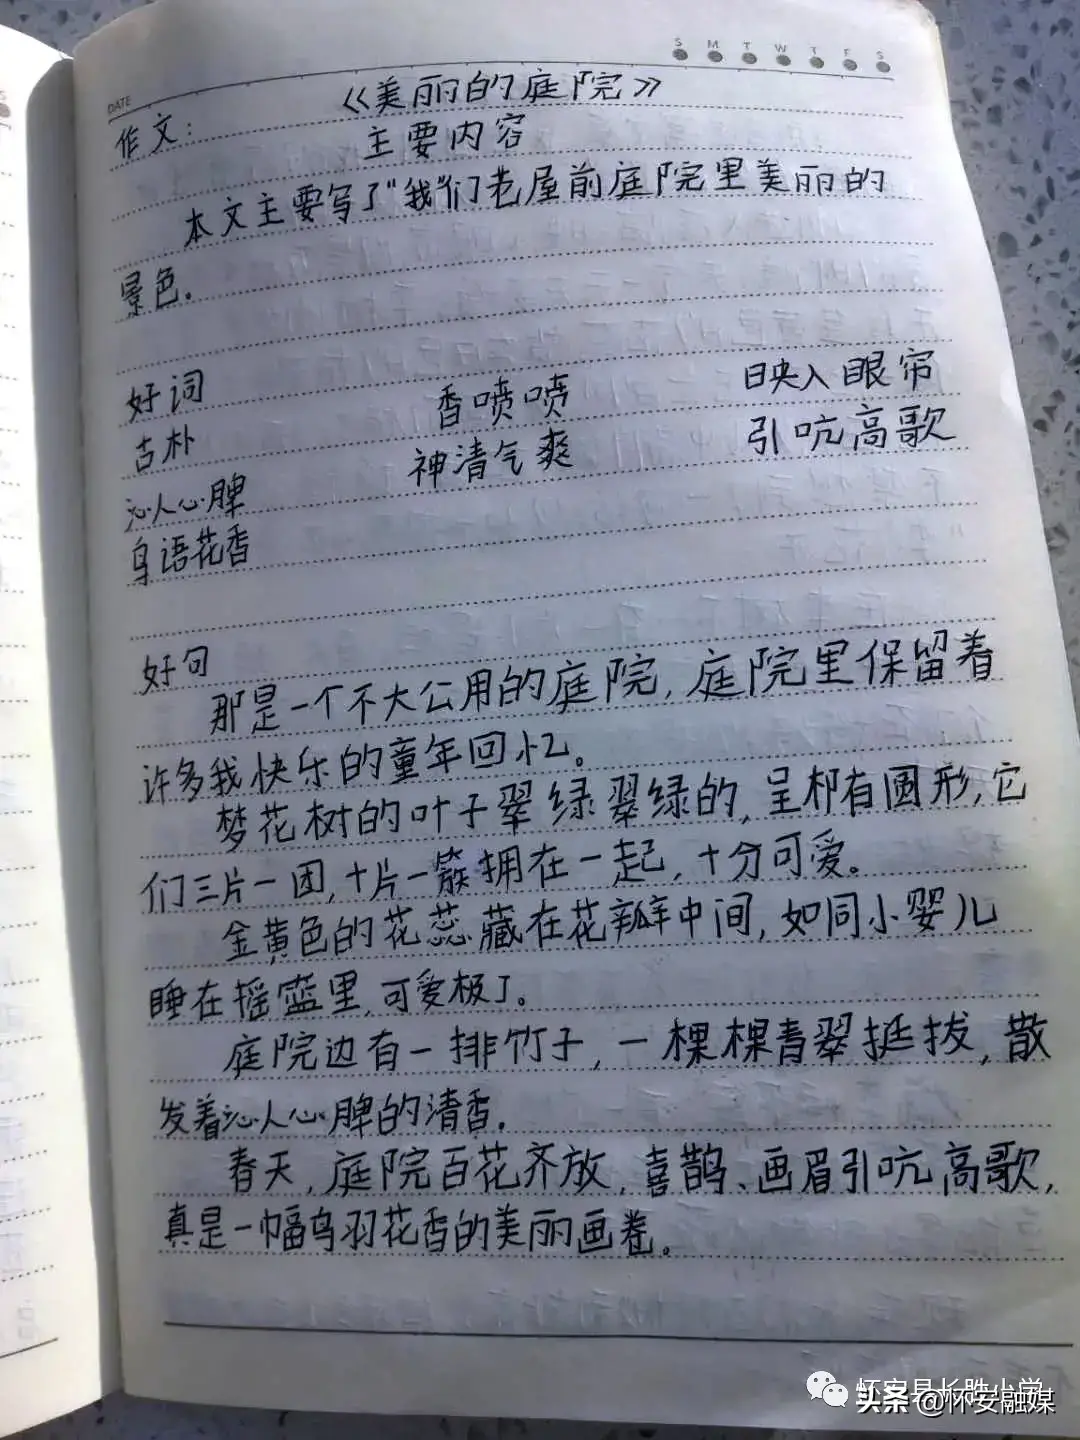 S M T W T F S
DATE
作文：《美丽的庭院》
主要内容
本文主要写了"我"们老屋前庭院里美丽的
景色。
好词 香喷喷 映入眼帘
古朴 神清气爽 引吭高歌
沁人心脾
鸟语花香
好句
那是一个不大公用的庭院，庭院里保留着
许多我快乐的童年回忆。
梦花树的叶子翠绿翠绿的，呈椭圆形，它
们三片一团，十片一簇拥在一起，十分可爱。
金黄色的花蕊藏在花瓣中间，如同小婴儿
睡在摇篮里，可爱极了。
庭院边有一排竹子，一棵棵青翠挺拔，散
发着沁人心脾的清香。
春天，庭院百花齐放，喜鹊、画眉引吭高歌，
真是一幅鸟羽花香的美丽画卷。
怀安县长胜小学
头条 @怀安融媒